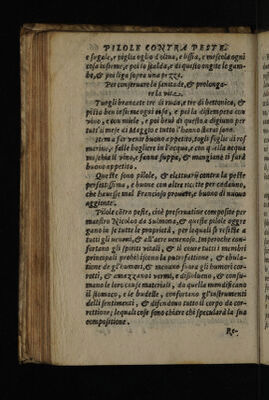 PILOLE CONTRA PESTE
e fugale, e toglie oglio d'oliua, e bissa, e mescola ogni
cosa insieme, e poi lo scalda, & di questo ongite le gam-
be, & poi liga sopra una pezza.
Per conseruare la sanitade, & prolonga-
re la vita.
Tuogli brancate tre di ruta, tre di bettonica, &
pista ben insieme ogni cosa, e poi la distempera con
vino, e con miele, e poi beui di questo a digiuno per
tutti il mese di Maggio e tutto l'hanno sterai sano.
Item a far venir buono appetito, togli foglie di ros-
marino, e falle bogliere in l'acqua, e con quella acqua
mischia il vino, e fanne suppa, & mangiane ti farà
buono appetito.
Queste sono pilole, & elettuarij contra la peste
perfettissima, e buone con altre ricette per cadauno,
che hauesse mal Francioso prouate, e buono di nuouo
aggionte.
Pilole cōtra peste, cioè preseruatiue composite per
maestro Nicolao da Sulmona, & queste pilole aggra
gano in se tutte le proprietà, per le quali si resiste a
tutti gli ueneni, & all'aere uenenoso. Imperoche con-
fortano gli spiriti vitali, & il cuore tutti i membri
principali prohibiscono la putrefattione, & ebula-
tione de gl'humori, & menano fuora gli humori cor-
rotti, & amazzano i vermi, e dissolueno, & consu-
mano le loro cause materiali, da quella mondificano
il stomaco, e le budelle, confortano gl'instrumenti
delli sentimenti, & difendono tutto il corpo da cor-
rettione; le quali cose sono chiare chi speculerà la sua
compositione.
Re-